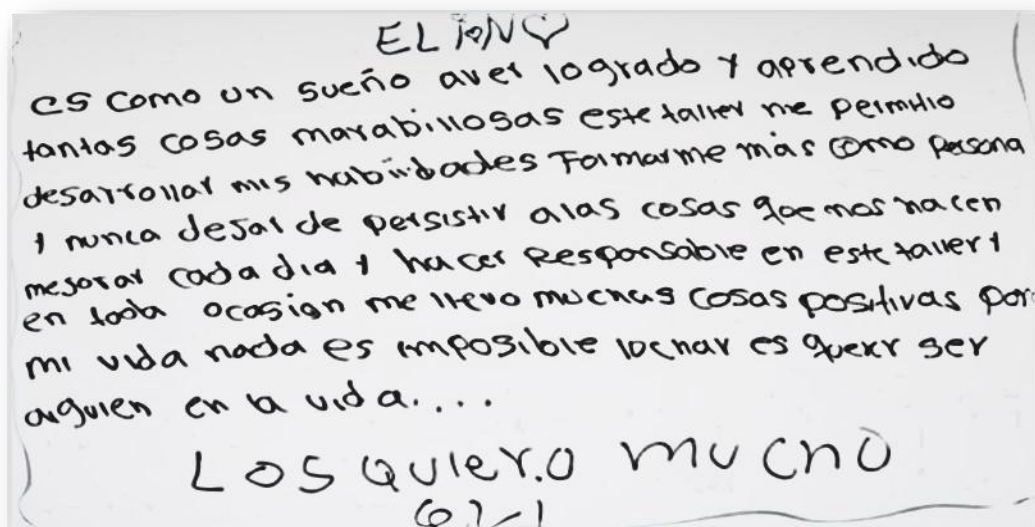 es como un sueño aver logrado y aprendido
tantas cosas marabillosas este taller me permitio
desarrollar mis habilidades Formarme más como persona
y nunca dejar de persistir a las cosas que nos hacen
mejorar cada dia y hacer Responsable en este taller y
en toda ocasion me llevo muchas cosas positivas por
mi vida nada es imposible luchar es querer ser
alguien en la vida....
Los quiero mucho